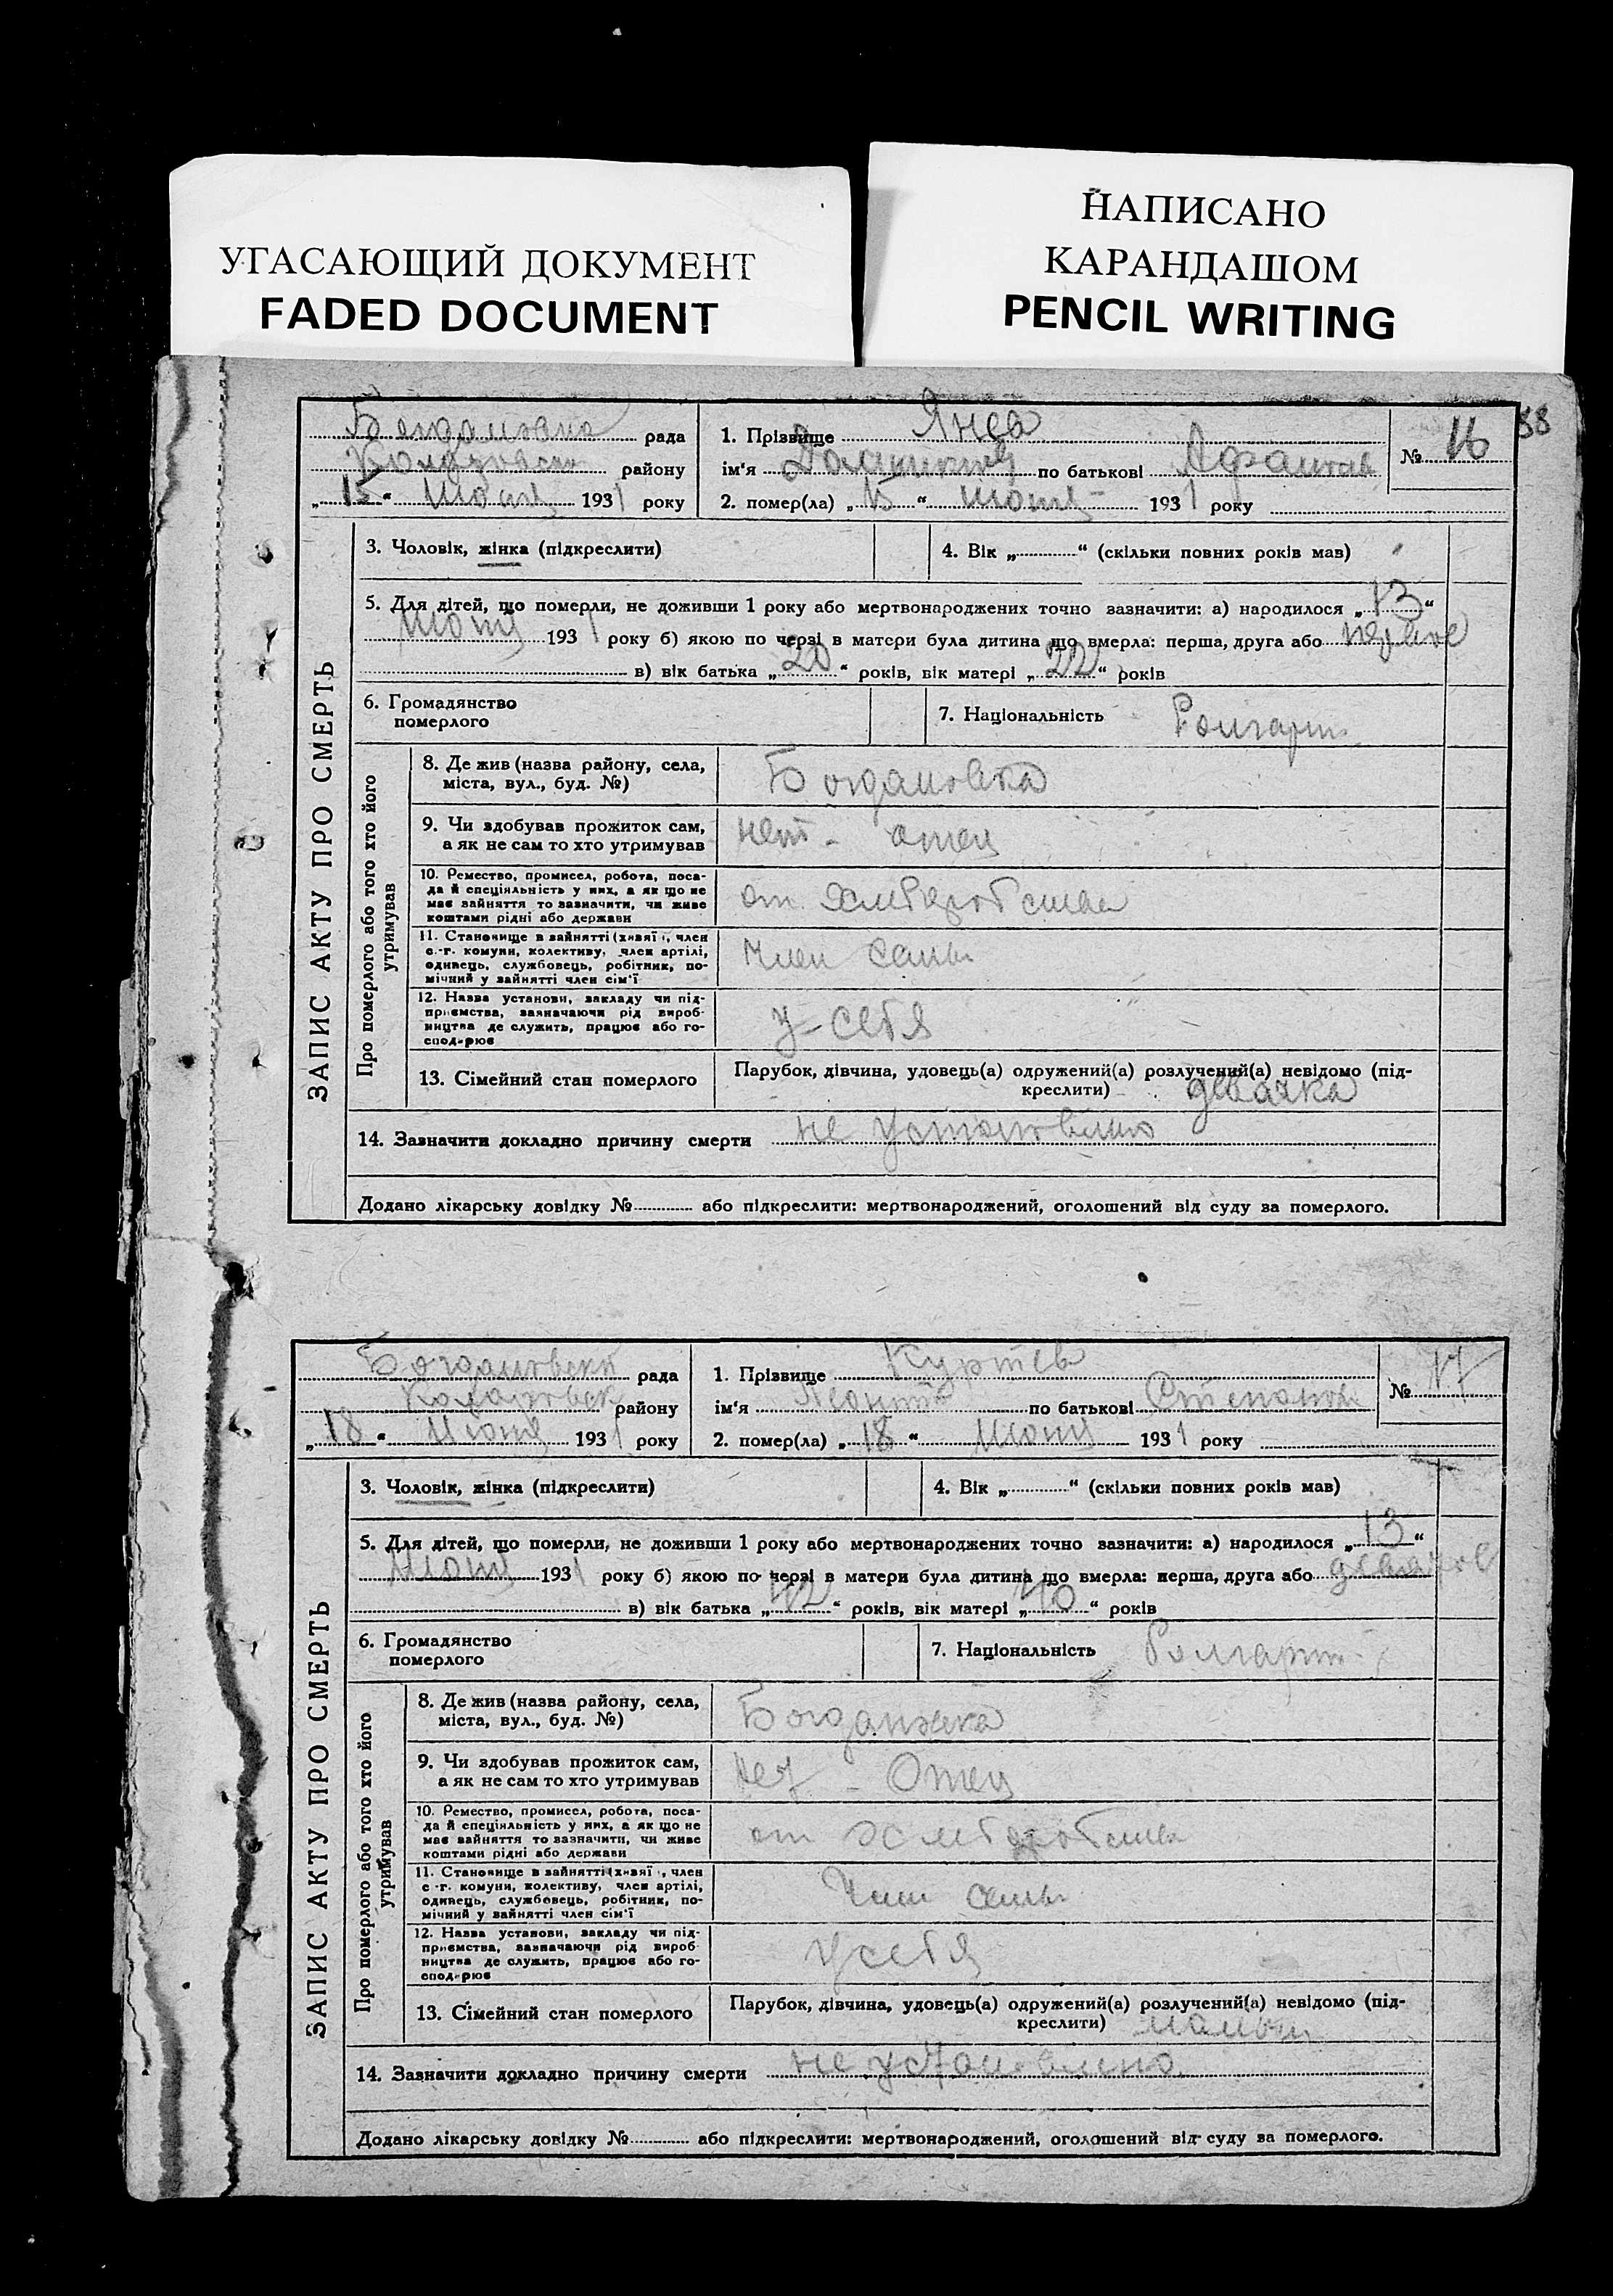 УГАСАЮЩИЙ ДОКУМЕНТ
FADED DOCUMENT
НАПИСАНО
КАРАНДАШОМ
PENCIL WRITING
88
рада
району
„15“ 1931 року
1. Прізвище Янев
ім'я по батькові
2. помер(ла) „15“ 1931 року
№ 16
ЗАПИС АКТУ ПРО СМЕРТЬ
3. Чоловік, жінка (підкреслити)
4. Вік „ “ (скільки повних років мав)
5. Для дітей, що померли, не доживши 1 року або мертвонароджених точно зазначити: а) народилося „13“
1931 року б) якою по черзі в матери була дитина що вмерла: перша, друга або первое
в) вік батька „20“ років, вік матері „22“ років
6. Громадянство
померлого
7. Національність Болгарин
Про померлого або того хто його
утримував
8. Де жив (назва району, села,
міста, вул., буд. №)
Богдановка
9. Чи здобував прожиток сам,
а як не сам то хто утримував
нет - отец
10. Ремество, промисел, робота, поса-
да й спеціяльність у них, а як що не
має зайняття то зазначити, чи живе
коштами рідні або держави
от хлеборобства
11. Становище в зайнятті (хазяї, член
с.-г. комуни, колективу, член артілі,
одинець, службовець, робітник, по-
мічний у зайнятті член сім'ї
член семьи
12. Назва установи, закладу чи під-
приємства, зазначаючи рід вироб-
ництва де служить, працює або го-
сподарює
у-себя
13. Сімейний стан померлого
Парубок, дівчина, удовець(а) одружений(а) розлучений(а) невідомо (під-
креслити) девочка
14. Зазначити докладно причину смерти не установлено
Додано лікарську довідку № або підкреслити: мертвонароджений, оголошений від суду за померлого.
рада
району
„18“ 1931 року
1. Прізвище Куртев
ім'я по батькові Степанов
2. помер(ла) „18“ 1931 року
№ 17
ЗАПИС АКТУ ПРО СМЕРТЬ
3. Чоловік, жінка (підкреслити)
4. Вік „ “ (скільки повних років мав)
5. Для дітей, що померли, не доживши 1 року або мертвонароджених точно зазначити: а) народилося „13“
1931 року б) якою по черзі в матери була дитина що вмерла: перша, друга або
в) вік батька „42“ років, вік матері „40“ років
6. Громадянство
померлого
7. Національність Болгарин
Про померлого або того хто його
утримував
8. Де жив (назва району, села,
міста, вул., буд. №)
Богдановка
9. Чи здобував прожиток сам,
а як не сам то хто утримував
нет - Отец
10. Ремество, промисел, робота, поса-
да й спеціяльність у них, а як що не
має зайняття то зазначити, чи живе
коштами рідні або держави
от хлеборобства
11. Становище в зайнятті (хазяї, член
с.-г. комуни, колективу, член артілі,
одинець, службовець, робітник, по-
мічний у зайнятті член сім'ї
Член семьи
12. Назва установи, закладу чи під-
приємства, зазначаючи рід вироб-
ництва де служить, працює або го-
сподарює
у себя
13. Сімейний стан померлого
Парубок, дівчина, удовець(а) одружений(а) розлучений(а) невідомо (під-
креслити)
14. Зазначити докладно причину смерти не установлено
Додано лікарську довідку № або підкреслити: мертвонароджений, оголошений від суду за померлого.